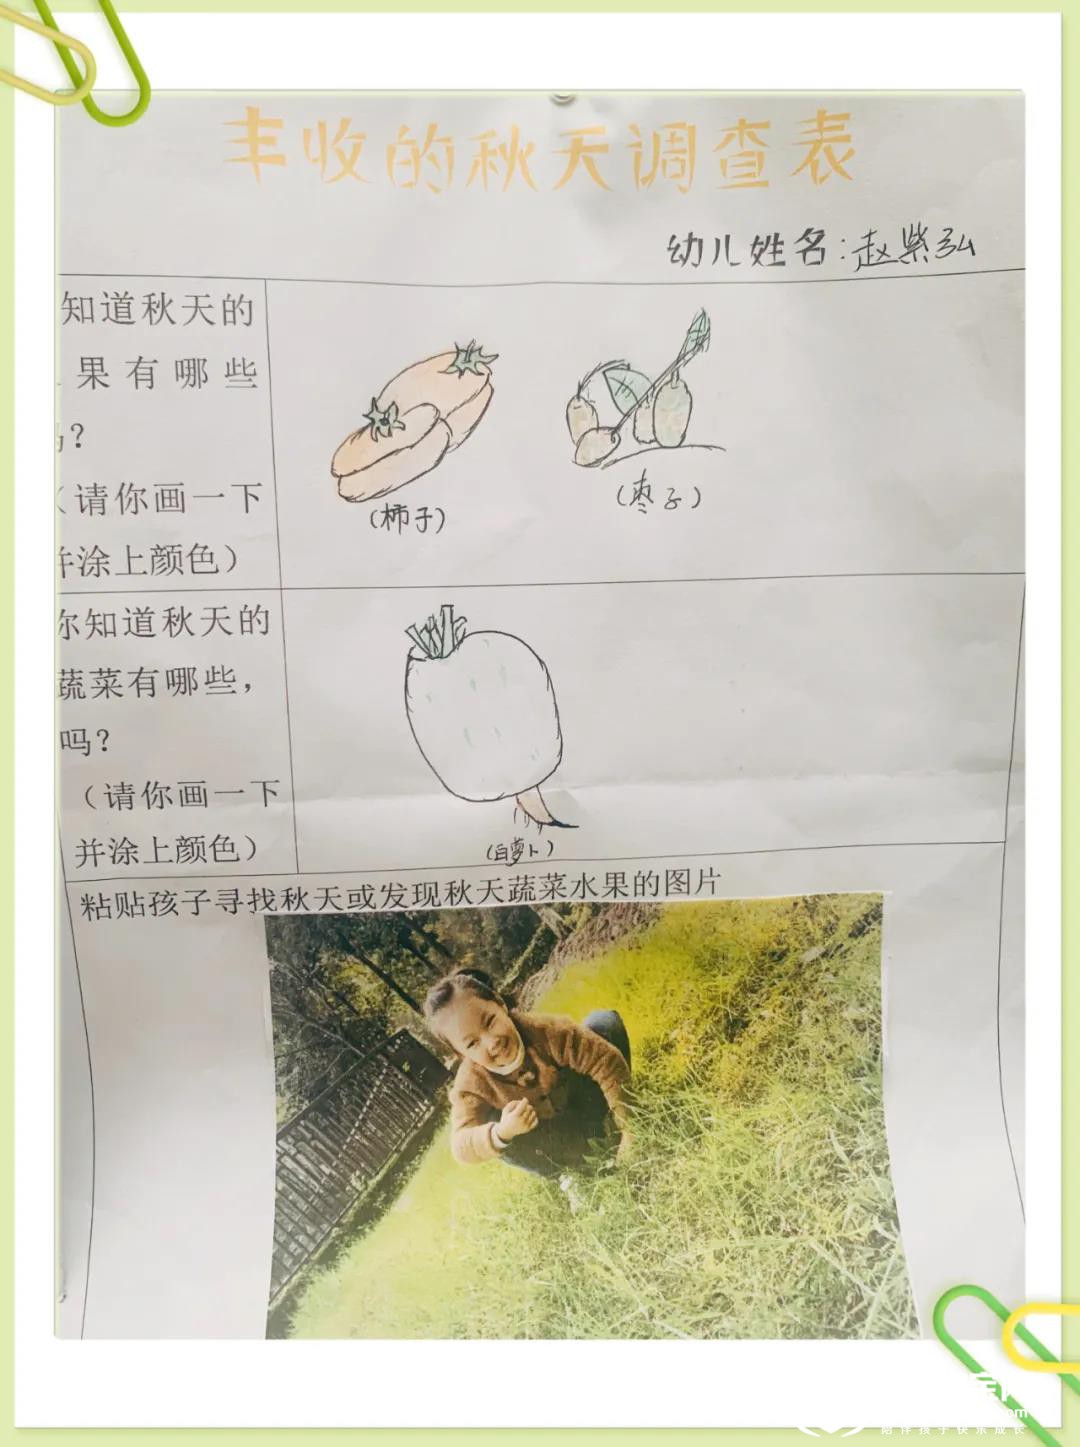 丰收的秋天调查表
幼儿姓名:赵紫弘
知道秋天的
果有哪些
?
(请你画一下
并涂上颜色)
(柿子)
(枣子)
你知道秋天的
蔬菜有哪些,
吗?
(请你画一下
并涂上颜色)
(白萝卜)
粘贴孩子寻找秋天或发现秋天蔬菜水果的图片
陪伴孩子快乐成长